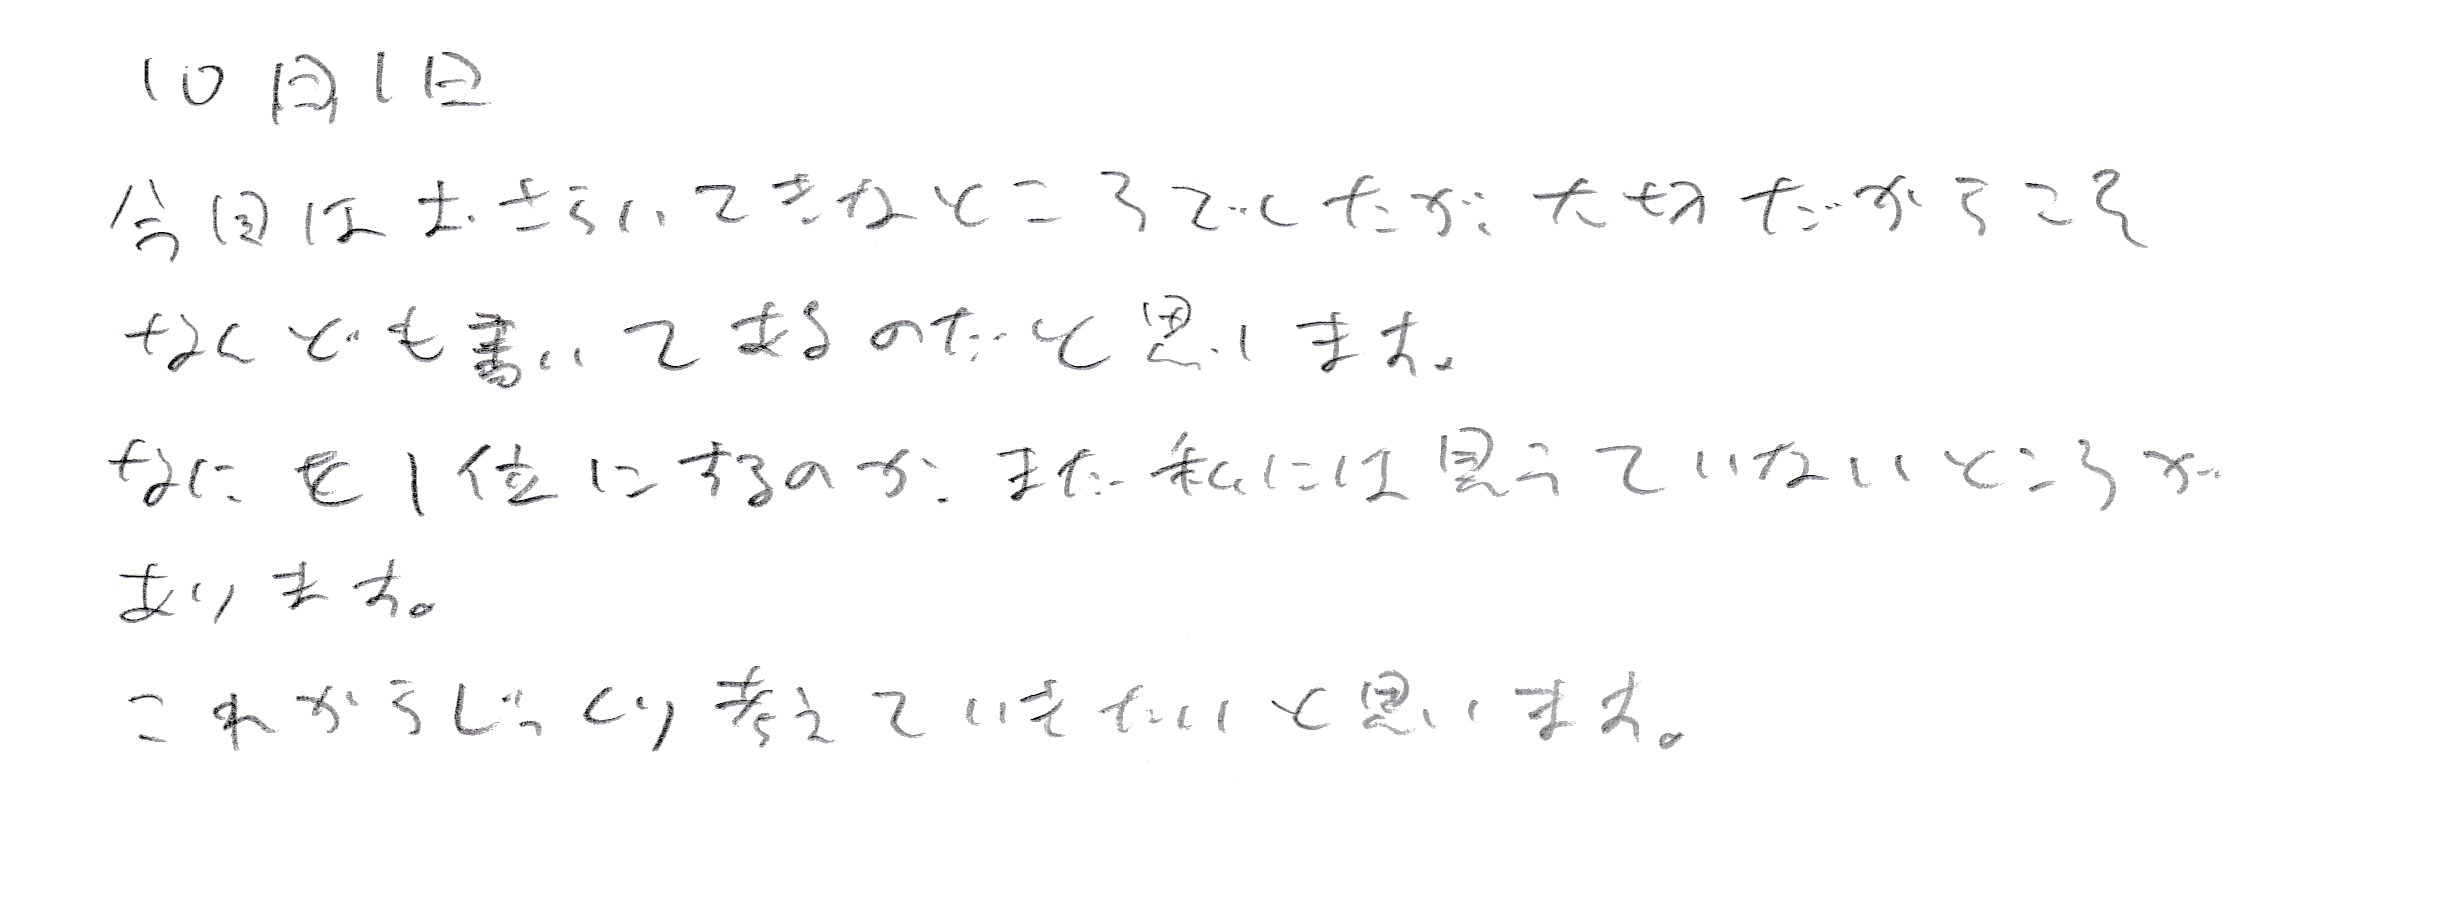 10月1日
今回はおさらいてきなところでしたが、大切だからこそ
なんども書いてあるのだと思います。
なにを1位にするのか、まだ私には思えていないところが
あります。
これからじっくり考えていきたいと思います。